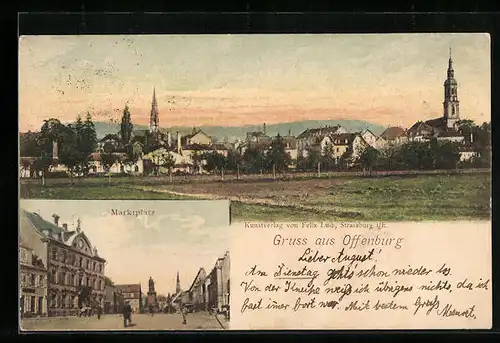 Marktplatz
Kunstverlag von Felix Luib, Strassburg i/E.
Gruss aus Offenburg
Lieber August!
Am Dienstag geht's schon wieder los
Von der Kneipe weiß ich übrigens nichts, da ich
fast immer fort war. Mit bestem Gruß